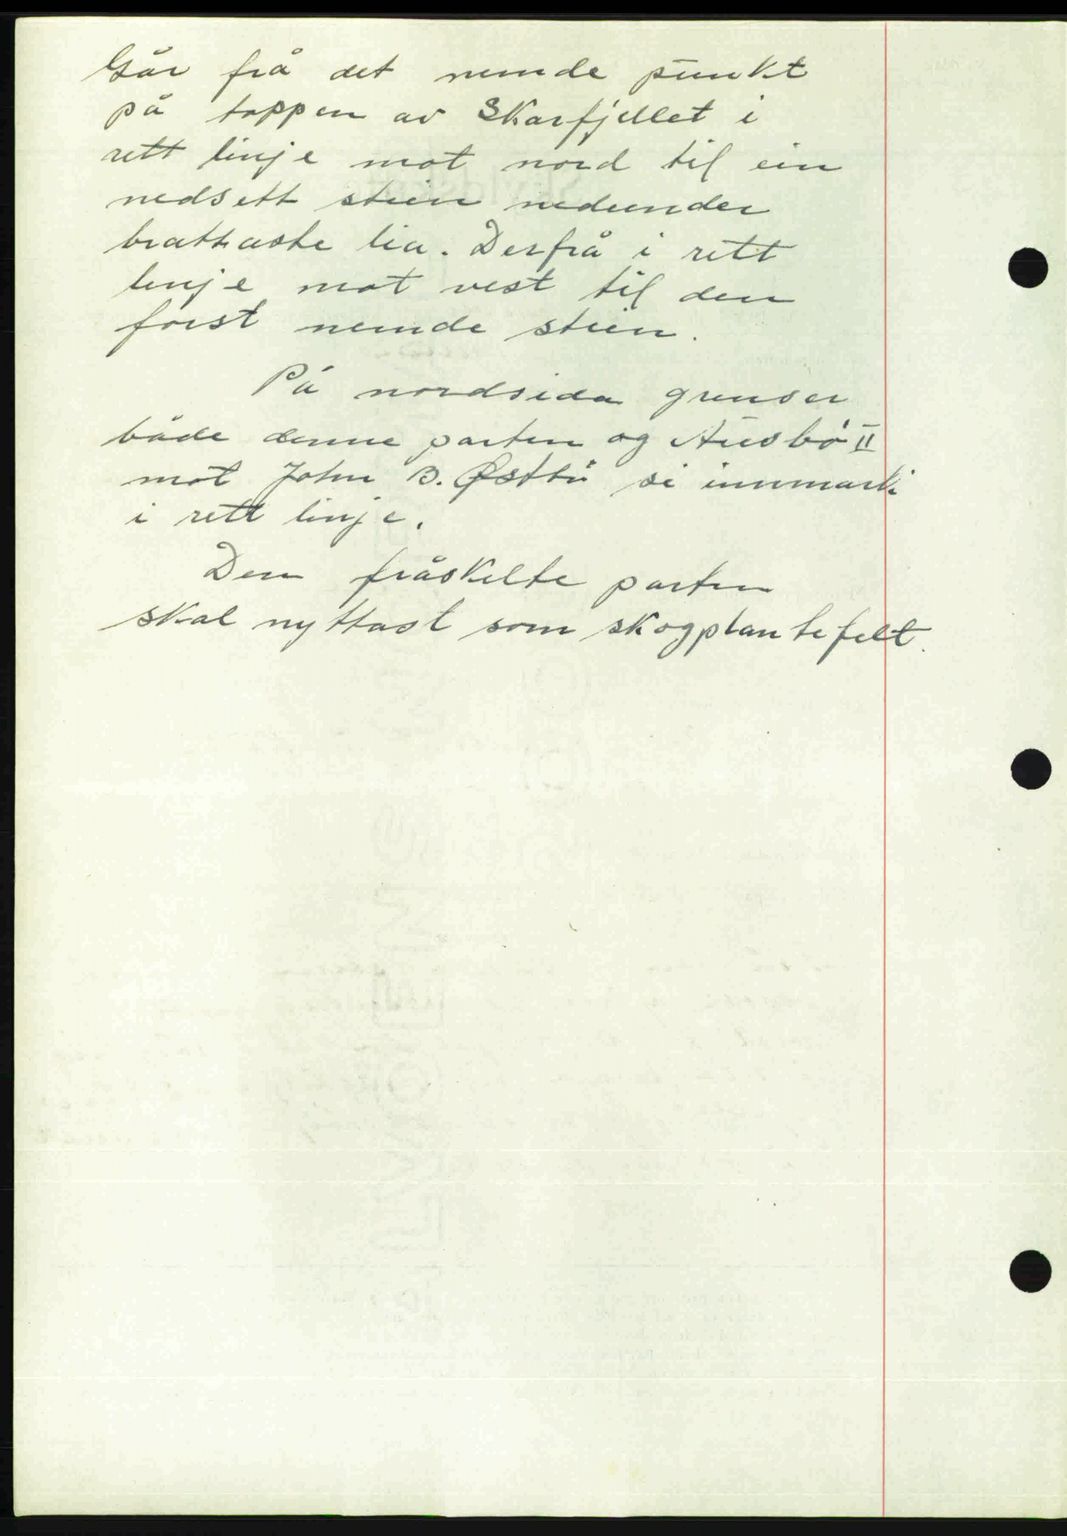 Går frå det nemde punkt
på toppen av Skarfjellet i
rett linje mot nord til ein
nedsett stein nedunder
brattaste lia. Derfrå i rett
linje mot vest til den
först nemde stein.
På nordsida grenser
både denne parten og Ausbö II
mot John B. Østbö si innmark
i rett linje.
Den fråskelte parten
skal nyttast som skogplantefelt.